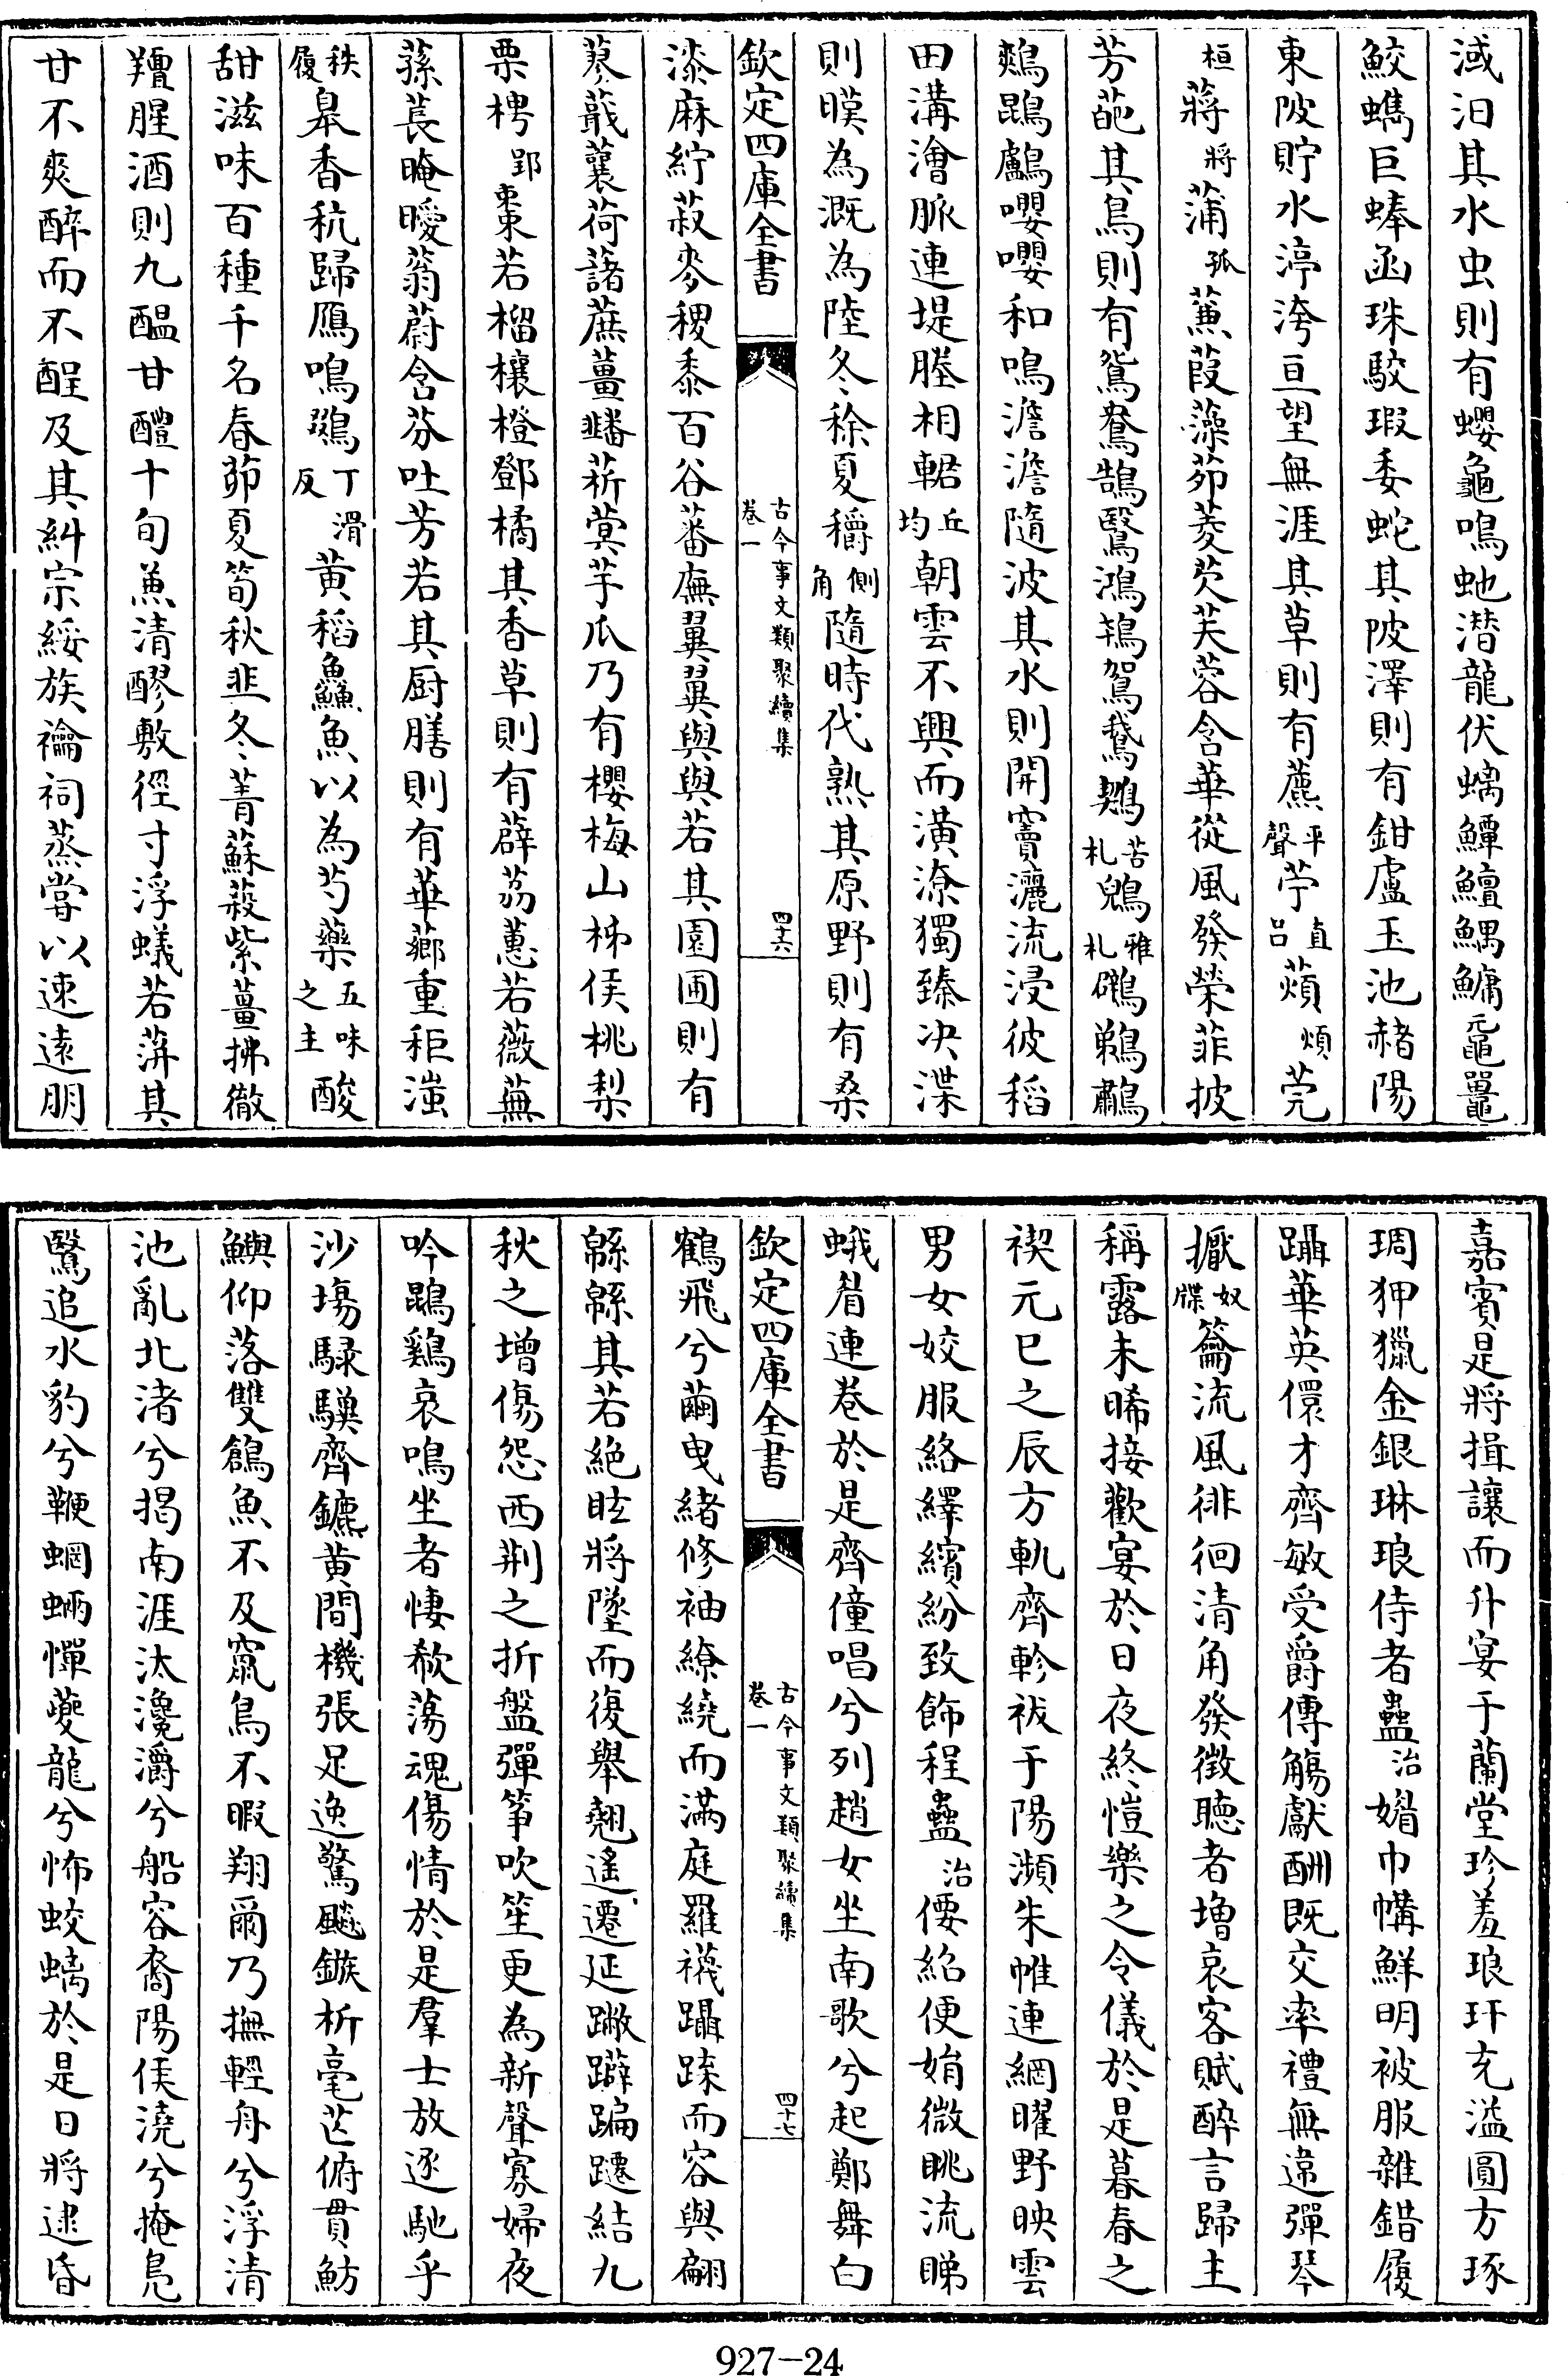 淢汩其水虫則有蠳龜鳴虵潜龍伏螭鱏鱣鰅鱅黿鼉
鮫蠵巨蜯函珠駮瑕委蛇其陂澤則有鉗盧玉池赭陽
東陂貯水渟洿亘望無涯其草則有藨平聲苧直吕薠煩莞
桓蔣將蒲孤蒹葭藻茆菱芡芙蓉含華從風發榮菲披
芳葩其鳥則有鴛鴦鵠鷖鴻鴇鴐鵝鶷苦札鶂雅札䴙鵜鷫
鷞鵾鸕嚶嚶和鳴澹澹隨波其水則開竇灑流浸彼稻
田溝澮脈連堤塍相輑丘均朝雲不興而潢潦獨臻决渫
則暵為溉為陸冬稌夏穱側角隨時代熟其原野則有桑
欽定四庫全書
古今事文類聚續集
卷一
四十六
漆麻紵菽麥稷黍百谷蕃廡翼翼與與若其園圃則有
蓼蕺蘘荷藷蔗薑䪤菥蓂芋瓜乃有櫻梅山柹侯桃梨
栗梬郢棗若榴穰橙鄧橘其香草則有薜荔蕙若薇蕪
蓀萇晻曖蓊蔚含芬吐芳若其厨膳則有華薌重秬滍
秩履皋香秔歸鴈鳴鵽丁滑反黄稻鱻魚以為芍藥五味之主酸
甜滋味百種千名春茆夏筍秋韭冬菁蘇蔱紫薑拂徹
羶腥酒則九醖甘醴十旬兼清醪敷徑寸浮蟻若蓱其
甘不爽醉而不酲及其糾宗綏族禴祠蒸嘗以速遠朋
嘉賓是將揖讓而升宴于蘭堂珍羞琅玕充溢圓方琢
琱狎獵金銀琳琅侍者蠱冶媚巾幬鮮明被服雜錯履
躡華英儇才齊敏受爵傳觴獻酬既交率禮無違彈琴
擫奴牒籥流風徘徊清角發徵聽者增哀客賦醉言歸主
稱露未晞接歡宴於日夜終愷樂之令儀於是暮春之
禊元巳之辰方軌齊軫祓于陽瀕朱帷連網曜野映雲
男女姣服絡繹繽紛致飾程蠱冶偠紹便娟微眺流睇
蛾眉連卷於是齊僮唱兮列趙女坐南歌兮起鄭舞白
欽定四庫全書
古今事文類聚續集
卷一
四十七
鶴飛兮繭曳緒修袖繚繞而滿庭羅襪躡蹀而容與翩
緜緜其若絶眩將墜而復舉翹遥遷延蹩躃蹁躚結九
秋之增傷怨西荆之折盤彈筝吹笙更為新聲寡婦夜
吟鵾鷄哀鳴坐者悽欷蕩魂傷情於是羣士放逐馳乎
沙塲騄驥齊鑣黄間機張足逸驚飈鏃析毫芒俯貫魴
鱮仰落雙鶬魚不及竄鳥不暇翔爾乃撫輕舟兮浮清
池亂北渚兮揭南涯汏瀺灂兮船容裔陽侯澆兮掩鳬
鷖追水豹兮鞭蝄蜽憚夔龍兮怖蛟螭於是日將逮昏
927-24